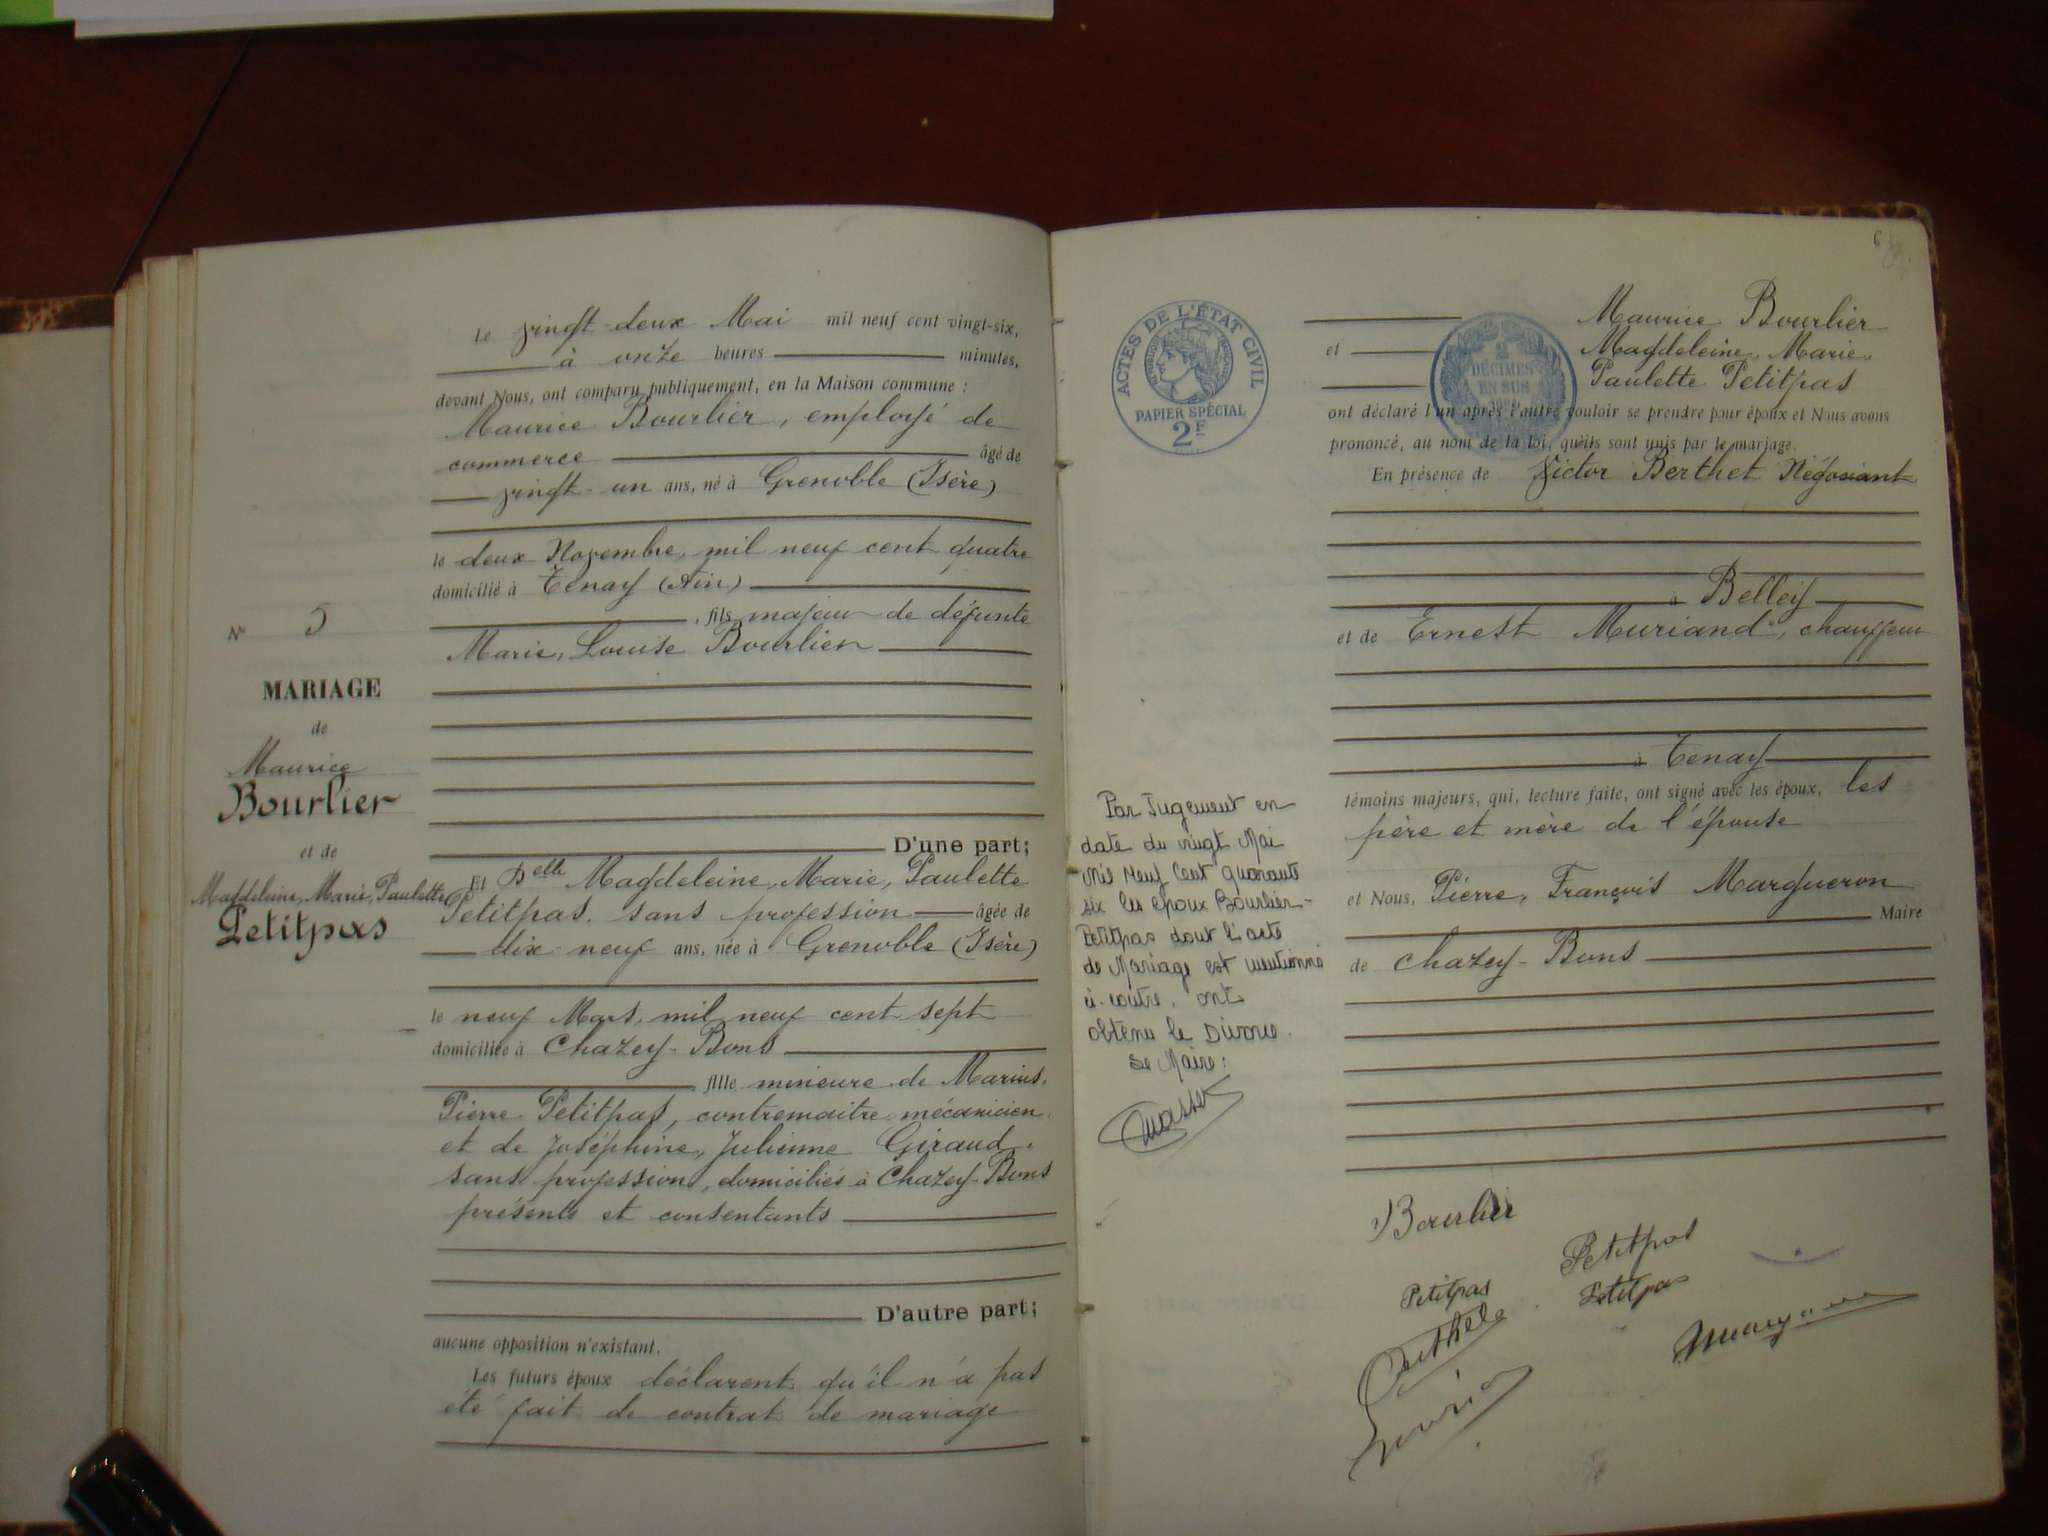 Le vingt-deux Mai mil neuf cent vingt-six,
à onze heures minutes,
devant Nous, ont comparu publiquement, en la Maison commune :
Maurice Bourlier, employé de
commerce âgé de
vingt-un ans, né à Grenoble (Isère)
le deux Novembre, mil neuf cent quatre
domicilié à Tenay (Ain)
, fils majeur de défunte
Marie, Louise Bourlier
N° 5
MARIAGE
de
Maurice
Bourlier
et de
Magdeleine, Marie, Paulette
Petitpas
D'une part;
Et Delle Magdeleine, Marie, Paulette
Petitpas, sans profession âgée de
dix-neuf ans, née à Grenoble (Isère)
le neuf Mars, mil neuf cent sept
domiciliée à Chazey-Bons
, fille mineure de Marius,
Pierre Petitpas, contremaitre mécanicien
et de Joséphine, Julienne Giraud,
sans profession, domiciliés à Chazey-Bons
présents et consentants
D'autre part;
aucune opposition n'existant.
Les futurs époux déclarent qu'il n'a pas
été fait de contrat de mariage
6
ACTES DE L'ÉTAT CIVIL
PAPIER SPÉCIAL
2F
2
DÉCIMES
EN SUS
Maurice Bourlier
et Magdeleine, Marie,
Paulette Petitpas
ont déclaré l'un après l'autre vouloir se prendre pour époux et Nous avons
prononcé, au nom de la loi, qu'ils sont unis par le mariage.
En présence de Victor Berthet Négociant
à Belley
et de Ernest Muriand, chauffeur
à Tenay
témoins majeurs, qui, lecture faite, ont signé avec les époux, les
père et mère de l'épouse
et Nous, Pierre, François Margueron
Maire
de Chazey-Bons
Par Jugement en
date du vingt Mai
Mil Neuf Cent quarante
six les époux Bourlier-
Petitpas dont l'acte
de Mariage est mentionné
ci-contre, ont
obtenu le Divorce.
Le Maire :
Bourlier
Petitpas
Petitpas
Petitpas